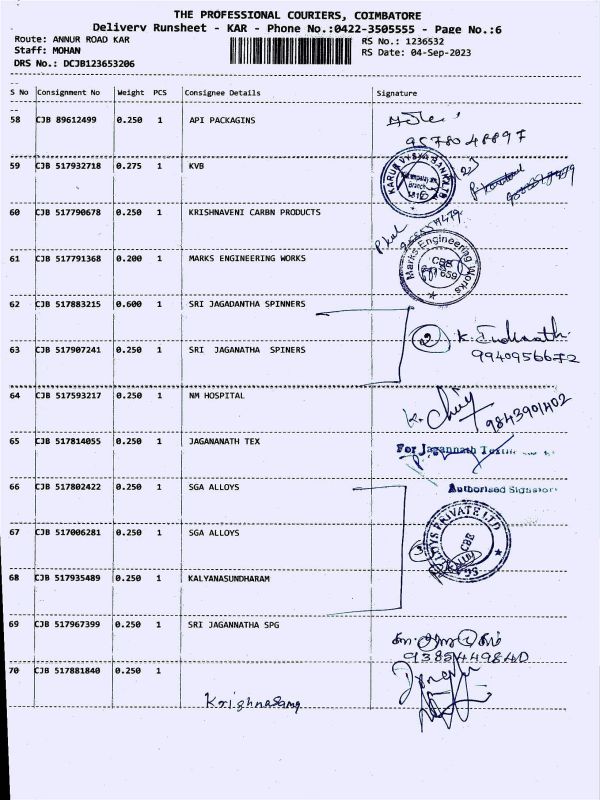 THE PROFESSIONAL COURIERS, COIMBATORE
Delivery Runsheet - KAR - Phone No.:0422-3505555 - Page No.:6
Route: ANNUR ROAD KAR
Staff: MOHAN
DRS No.: DCJB123653206
RS No.: 1236532
RS Date: 04-Sep-2023
S No Consignment No Weight PCS Consignee Details Signature
58 CJB 89612499 0.250 1 API PACKAGINS
9578048897
59 CJB 517932718 0.275 1 KVB
KARUR VYSYA BANK LTD
Branch
60 CJB 517790678 0.250 1 KRISHNAVENI CARBN PRODUCTS
61 CJB 517791368 0.200 1 MARKS ENGINEERING WORKS
Marks Engineering Works
CBE
659
62 CJB 517883215 0.600 1 SRI JAGADANTHA SPINNERS
63 CJB 517907241 0.250 1 SRI JAGANATHA SPINERS
2 K.
9940956672
64 CJB 517593217 0.250 1 NM HOSPITAL
K.
9843901402
65 CJB 517814055 0.250 1 JAGANANATH TEX
For Jagannath
66 CJB 517802422 0.250 1 SGA ALLOYS
Authorised
67 CJB 517006281 0.250 1 SGA ALLOYS
SGA ALLOYS PRIVATE LTD
CBE
68 CJB 517935489 0.250 1 KALYANASUNDHARAM
69 CJB 517967399 0.250 1 SRI JAGANNATHA SPG
9385449840
70 CJB 517881840 0.250 1
Krishnasamy